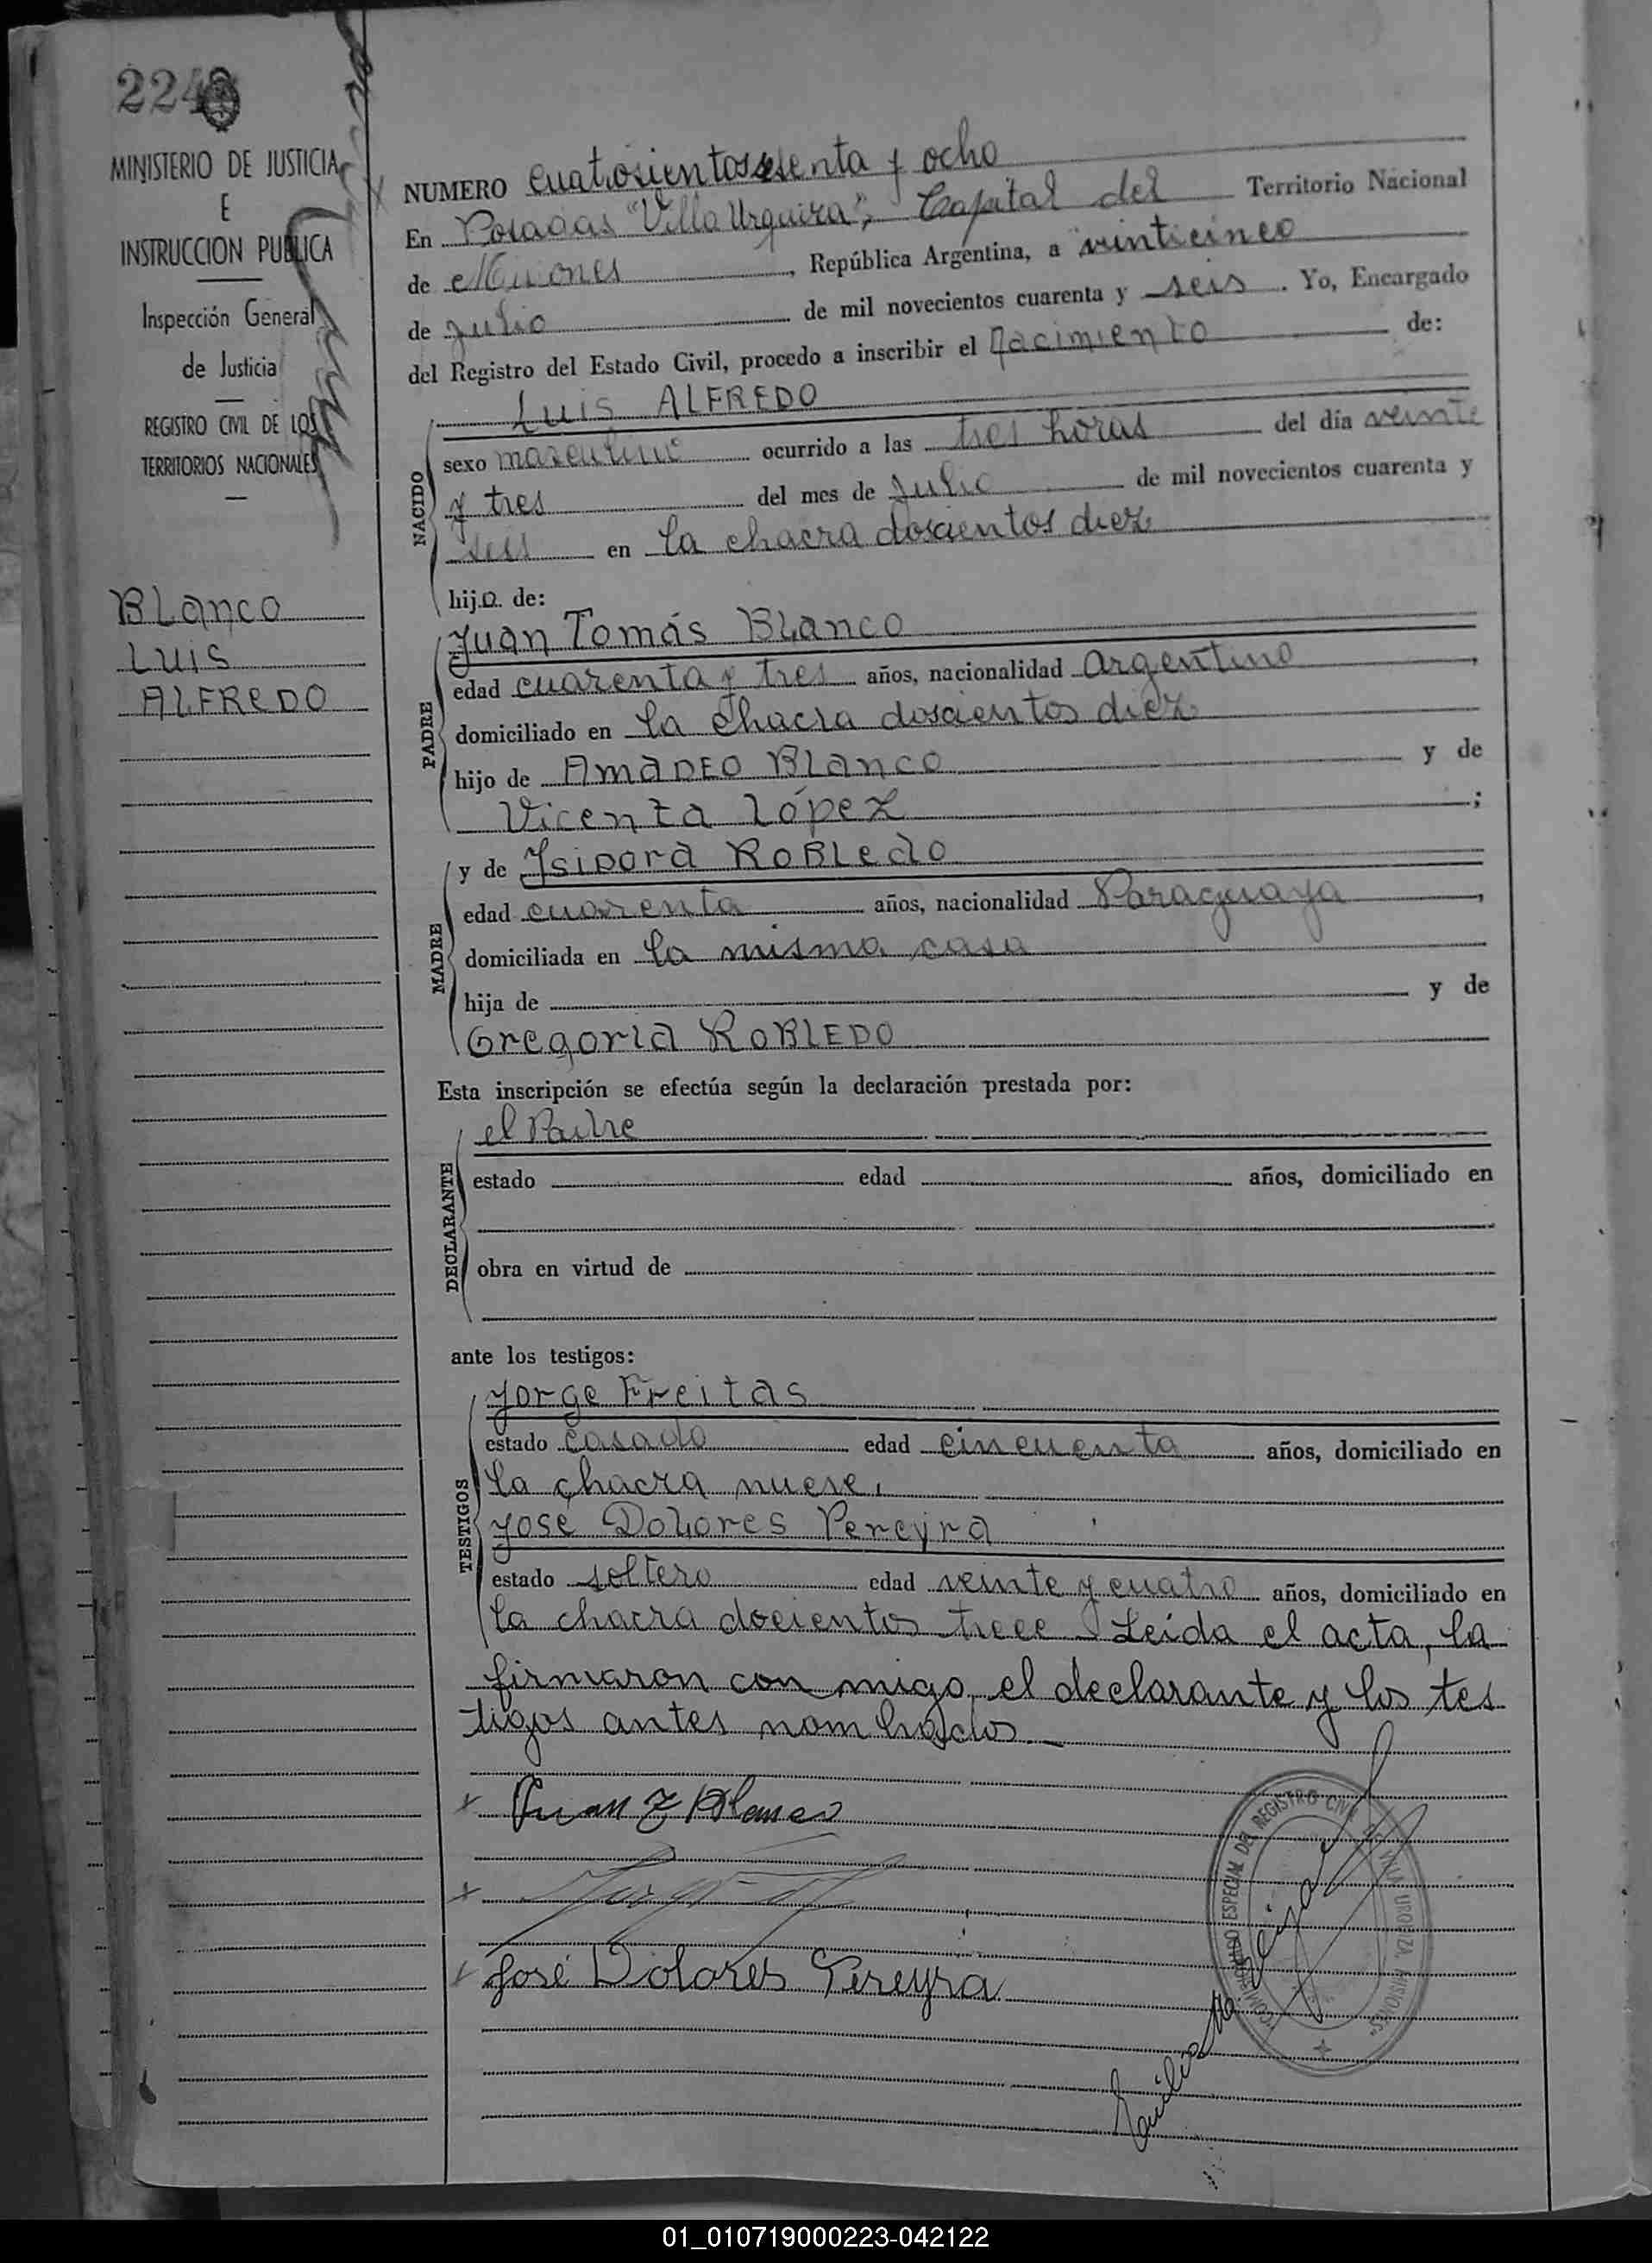 224
MINISTERIO DE JUSTICIA
E
INSTRUCCION PUBLICA
Inspección General
de Justicia
REGISTRO CIVIL DE LOS
TERRITORIOS NACIONALES
BLanco
LUIS
ALFREDO
NUMERO cuatrosientos sesenta y ocho
En Posadas "Villa Urquiza", Capital del Territorio Nacional
de Misiones, República Argentina, a vinticinco
de Julio de mil novecientos cuarenta y seis. Yo, Encargado
del Registro del Estado Civil, procedo a inscribir el Nacimiento de:
Luis ALFREDO
NACIDO
sexo masculino ocurrido a las tres horas del día veinte
y tres del mes de Julio de mil novecientos cuarenta y
seis en la chacra doscientos diez
hijo de:
PADRE
Juan Tomás Blanco
edad cuarenta y tres años, nacionalidad argentino,
domiciliado en la chacra doscientos diez
hijo de AmaDEO Blanco y de
Vicenta López;
MADRE
y de Isidora RoBLedo
edad cuarenta años, nacionalidad Paraguaya,
domiciliada en la misma casa
hija de y de
Gregoria RoBLEDO
Esta inscripción se efectúa según la declaración prestada por:
DECLARANTE
el Padre
estado edad años, domiciliado en
obra en virtud de
ante los testigos:
TESTIGOS
Jorge Freitas
estado casado edad cincuenta años, domiciliado en
la chacra nueve,
José Dolores Pereyra
estado soltero edad veinte y cuatro años, domiciliado en
la chacra docientos trece. Leida el acta, la
firmaron con migo, el declarante y los tes
tigos antes nombrados.
Juan T Blanco
José Dolores Pereyra
ESPECIAL DEL REGISTRO CIVIL VILLA URQUIZA, MISIONES
01_010719000223-042122